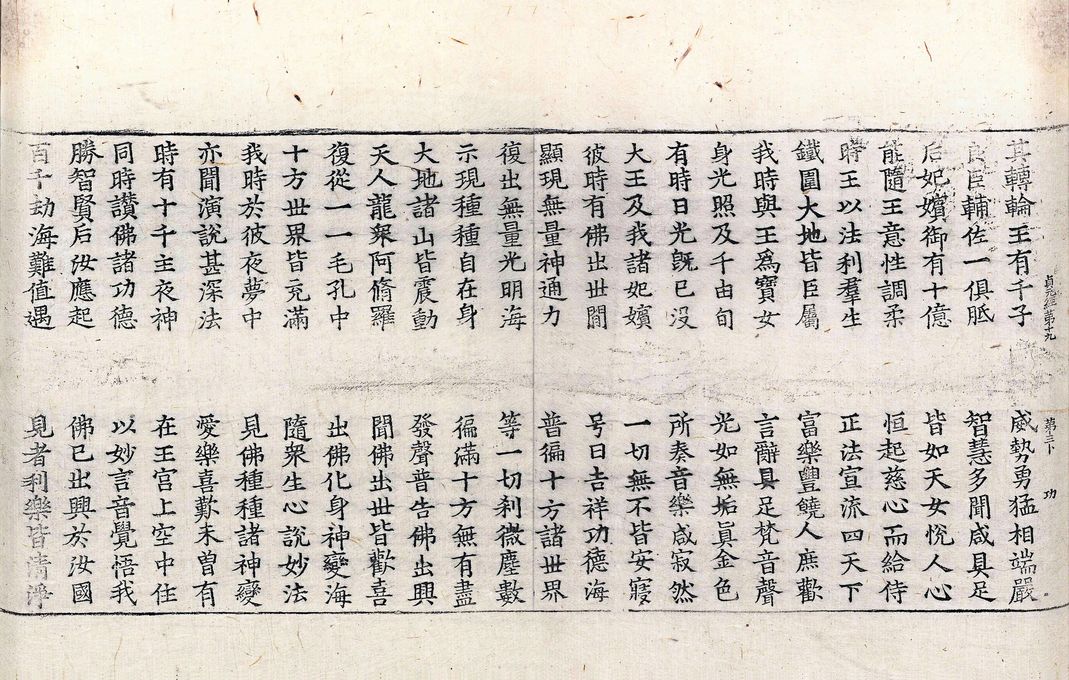 貞元經第十九 第三卜 功
其轉輪王有千子 威勢勇猛相端嚴
良臣輔佐一俱胝 智慧多聞咸具足
后妃嬪御有十億 皆如天女恱人心
能隨王意性調柔 恒起慈心而給侍
時王以法利羣生 正法宣流四天下
鐵圍大地皆臣屬 富樂豐饒人庶歡
我時與王爲寶女 言辭具足梵音聲
身光照及千由旬 光如無垢眞金色
有時日光旣已没 所奏音樂咸寂然
大王及我諸妃嬪 一切無不皆安寢
彼時有佛出世間 号曰吉祥功德海
顯現無量神通力 普徧十方諸世界
復出無量光明海 等一切刹微塵數
示現種種自在身 徧滿十方無有盡
大地諸山皆震動 發聲普告佛出興
天人龍衆阿脩羅 聞佛出世皆歡喜
復從一一毛孔中 出佛化身神變海
十方世界皆充滿 隨衆生心說妙法
我時於彼夜夢中 見佛種種諸神變
亦聞演說甚深法 愛樂喜歎未曾有
時有十千主夜神 在王宫上空中住
同時讃佛諸功德 以妙言音覺悟我
勝智賢后汝應起 佛已出興於汝國
百千劫海難值遇 見者利樂皆清淨